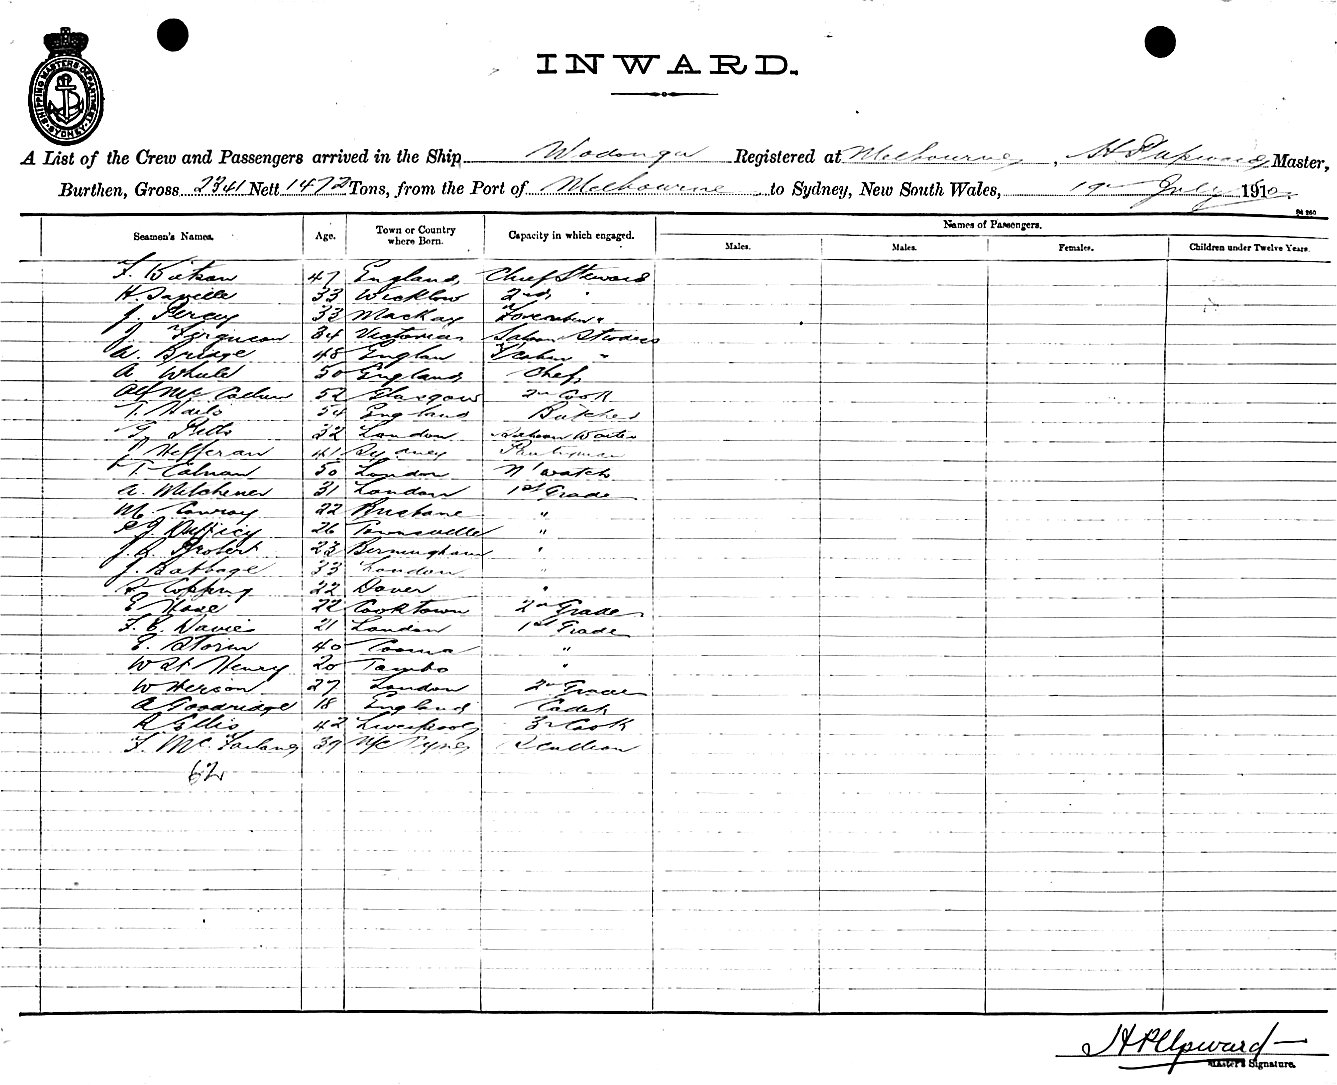 SHIPPING MASTERS DEPARTMENT SYDNEY
INWARD.
A List of the Crew and Passengers arrived in the Ship Wodonga Registered at Melbourne, H P Upward Master,
Burthen, Gross 2341 Nett 1472 Tons, from the Port of Melbourne to Sydney, New South Wales, July 1910.
Names of Passengers.
Seamen's Names. Age. Town or Country where Born. Capacity in which engaged. Males. Males. Females. Children under Twelve Years.
47 England Chief Steward
H. Saville 33 Wicklow 2nd "
J. Percy 33 Mackay "
J. Ferguson 34 Victoria Saloon
A. Bridge 48 Englan "
A 50 England Chef
Alf Mc 52 Glasgow 2nd Cook
T. 54 England Butcher
32 London Saloon Waiter
Hefferan 41 Sydney
T. Calnan 50 London N' watch
A. Mitchener 31 London 1st Grade
M Conroy 22 Brisbane "
26 Townsville "
J. Probert 23 Birmingham "
J. Babbage 33 London "
Copping 22 Dover "
E 22 Cooktown 2nd Grade
F. E. Davies 21 London 1st Grade
E. Storm 40 Cooma "
W St Henry 20 Tambo "
W Herson 27 London 2nd Grade
A Goodridge 18 England Cadet
R Ellis 42 Liverpool 3rd Cook
F. Mc Farlane 39 Scullion
62
H P Upward
Master's Signature.